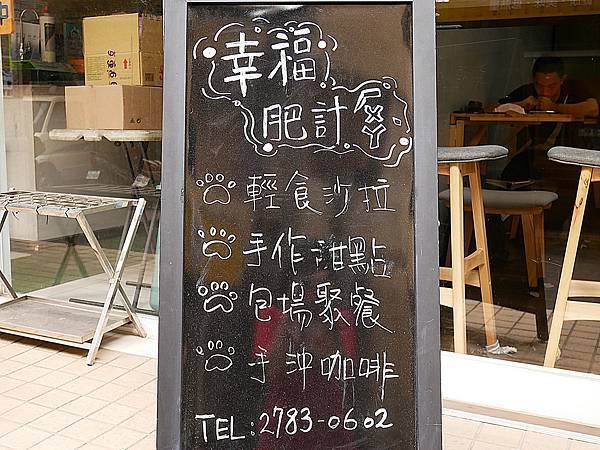 幸福
肥計
輕食沙拉
手作甜點
包場聚餐
手沖咖啡
TEL:2783-0602